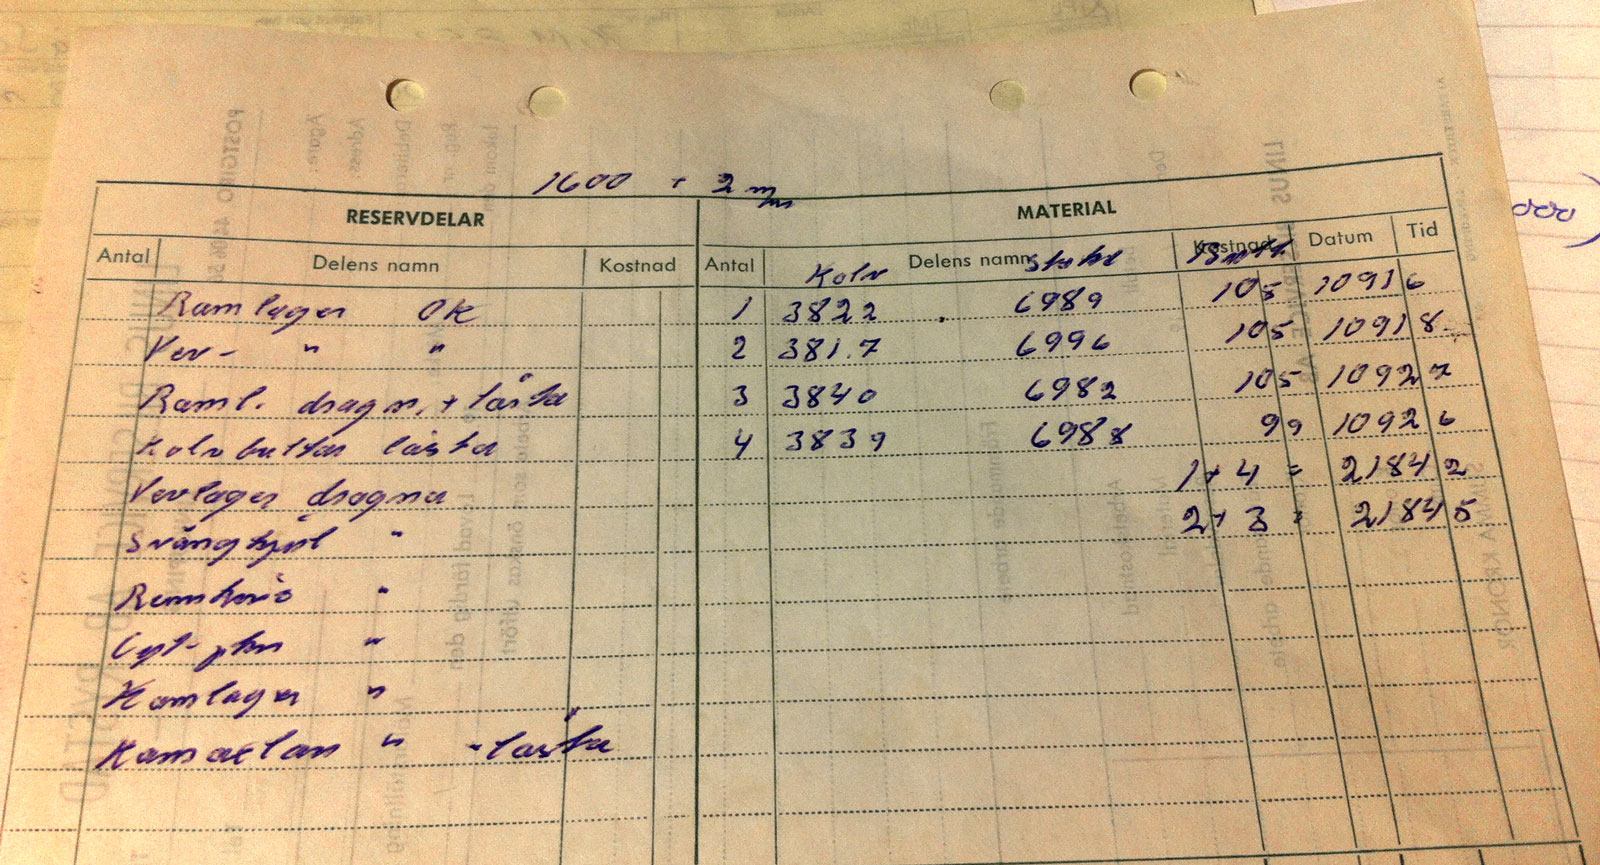 1600 + 2 m/m
RESERVDELAR MATERIAL
Antal Delens namn Kostnad Antal Delens namn Kostnad Datum Tid
Kolv
Ramlager OK 1 3822 6989 105 10916
Vev- " " 2 381.7 6996 105 10918
Raml. dragn. + låsta 3 3840 6982 105 10927
Kolvbultar låsta 4 3839 6988 99 10926
Vevlager dragna 1+4 = 21842
Svänghjul " 2+3 = 21845
Remskiva "
"
Kamlager "
Kamaxlar " låsta